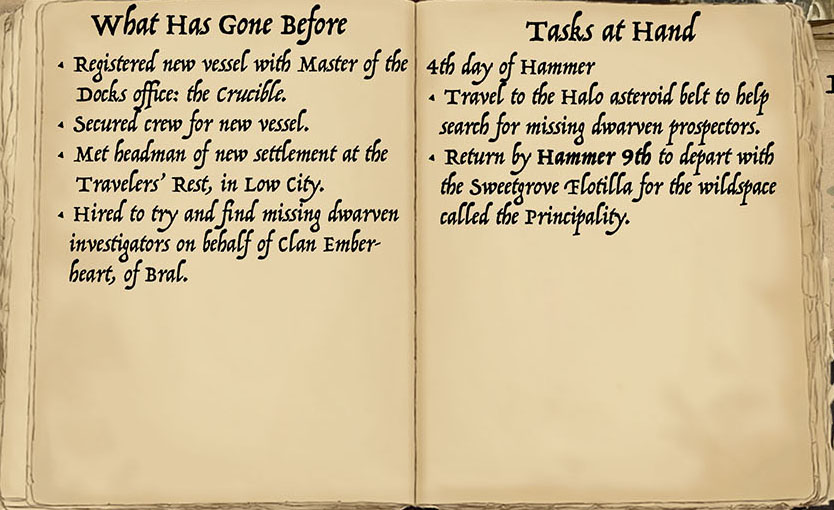 What Has Gone Before
• Registered new vessel with Master of the
Docks office: the Crucible.
• Secured crew for new vessel.
• Met headman of new settlement at the
Travelers' Rest, in Low City.
• Hired to try and find missing dwarven
investigators on behalf of Clan Ember-
heart, of Bral.
Tasks at Hand
4th day of Hammer
• Travel to the Halo asteroid belt to help
search for missing dwarven prospectors.
• Return by Hammer 9th to depart with
the Sweetgrove Flotilla for the wildspace
called the Principality.